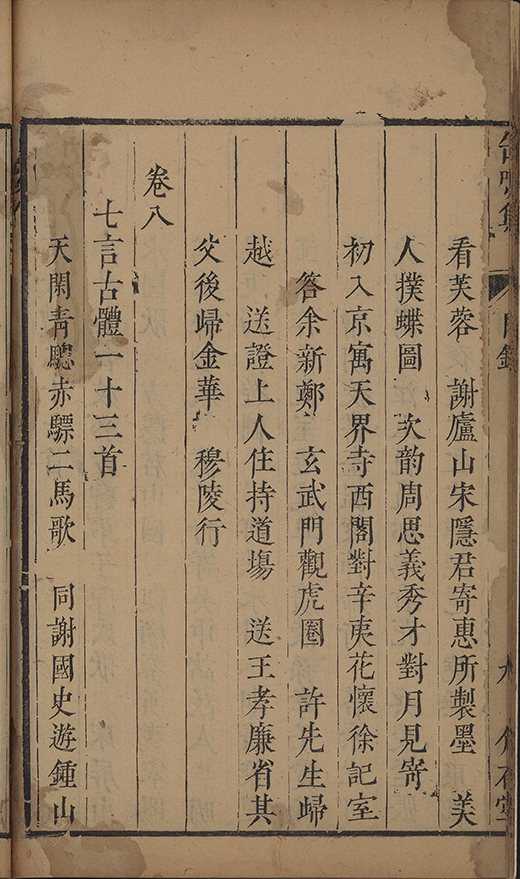 看芙蓉 謝廬山宋隱君寄惠所製墨 美
人撲蝶圖 次韵周思義秀才對月見寄
初入京寓天界寺西閣對辛夷花懷徐記室
答余新鄭 玄武門觀虎圈 許先生歸
越 送證上人住持道塲 送王孝廉省其
父後歸金華 穆陵行
卷八
七言古體一十三首
天閑青驄赤驃二馬歌 同謝國史遊鍾山